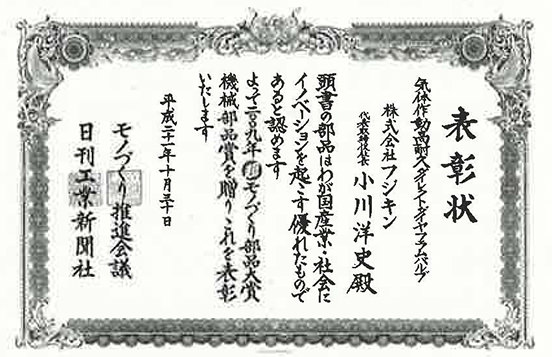 表彰状
気体作動高耐久ダイレクトダイヤフラムバルブ
株式会社フジキン
代表取締役 小川洋史殿
頭書の部品はわが国産業・社会に
イノベーションを起こす優れたもので
あると認めます
よって二〇〇九年超モノづくり部品大賞
機械部品賞を贈りこれを表彰
いたします
平成二十一年十月三十日
モノづくり推進会議
日刊工業新聞社